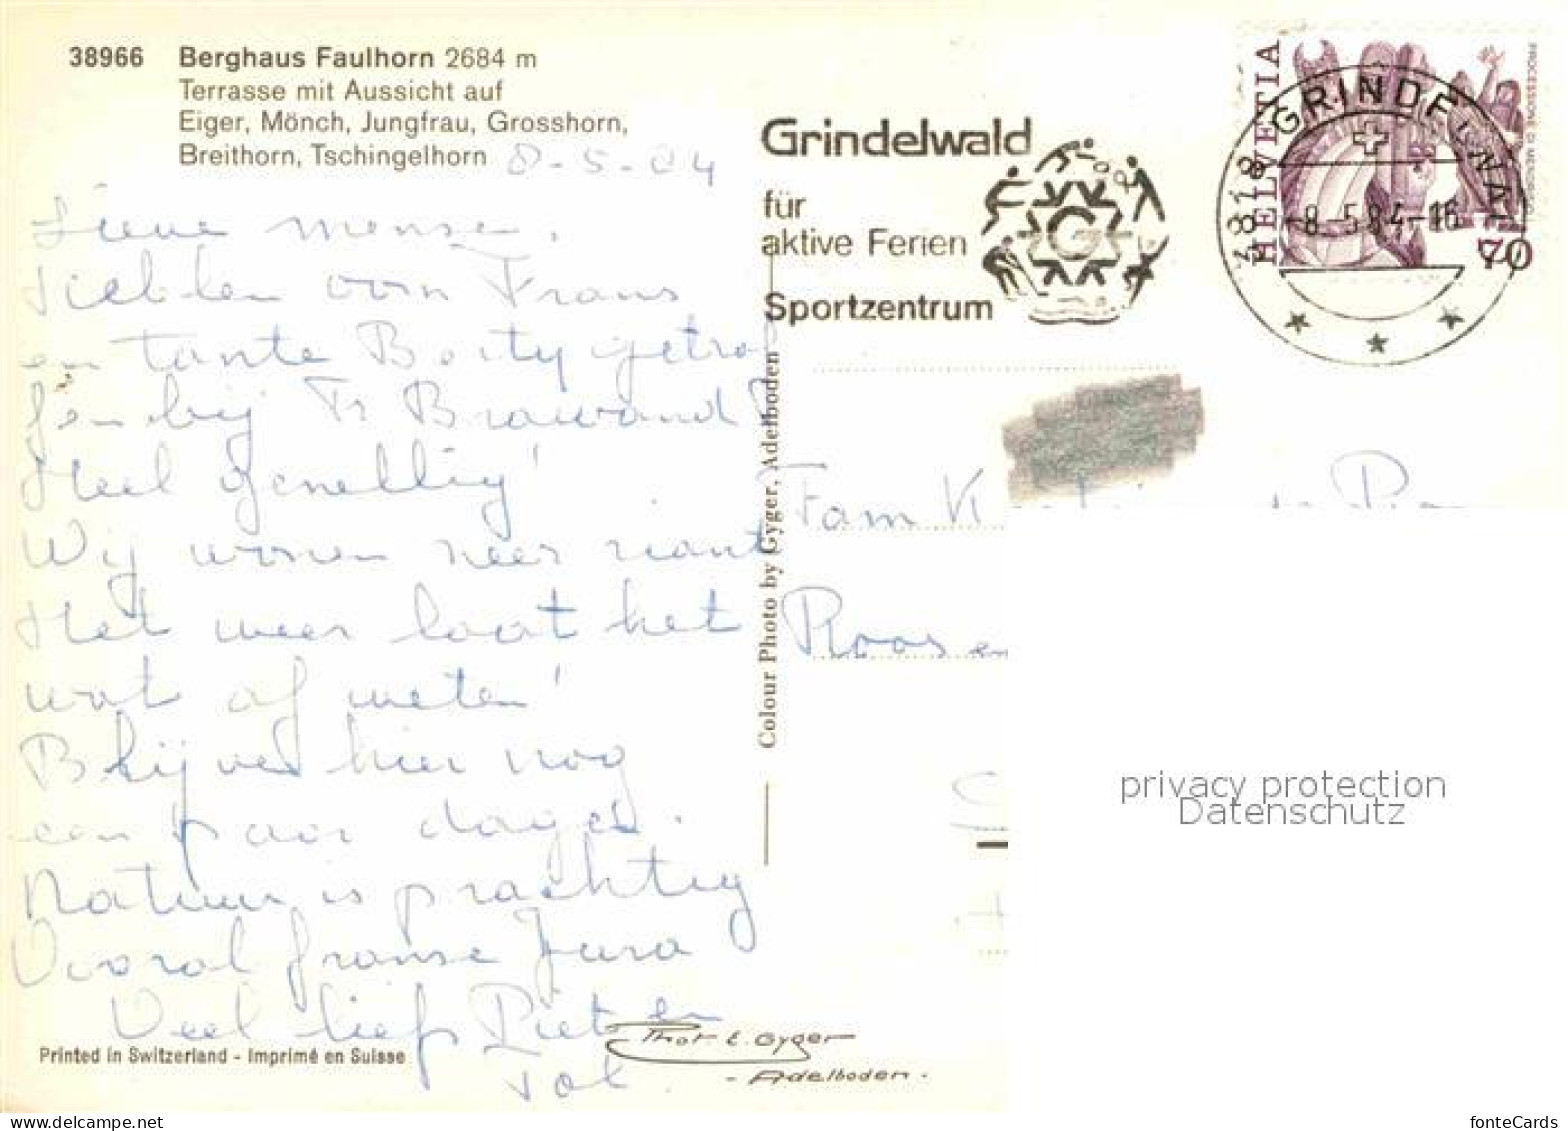 38966 Berghaus Faulhorn 2684 m
Terrasse mit Aussicht auf
Eiger, Mönch, Jungfrau, Grosshorn,
Breithorn, Tschingelhorn
8-5-84
Lieve mensen,
hebben oom Frans
en tante getrof
fen bij Fr Brawand
Heel gezellig!
Wij wonen zeer riant
Het weer laat het
wat af weten!
Blijven hier nog
een paar dagen.
Natuur is prachtig
Vooral franse Jura
Veel liefs Piet en
Printed in Switzerland - Imprimé en Suisse
Phot. E. Gyger
- Adelboden -
Colour Photo by Gyger, Adelboden
Grindelwald
für
aktive Ferien
Sportzentrum
G
HELVETIA
70
3818 GRINDELWALD
-8.-5.84-16
Fam K
Roosen
privacy protection
Datenschutz
www.delcampe.net
fonteCards